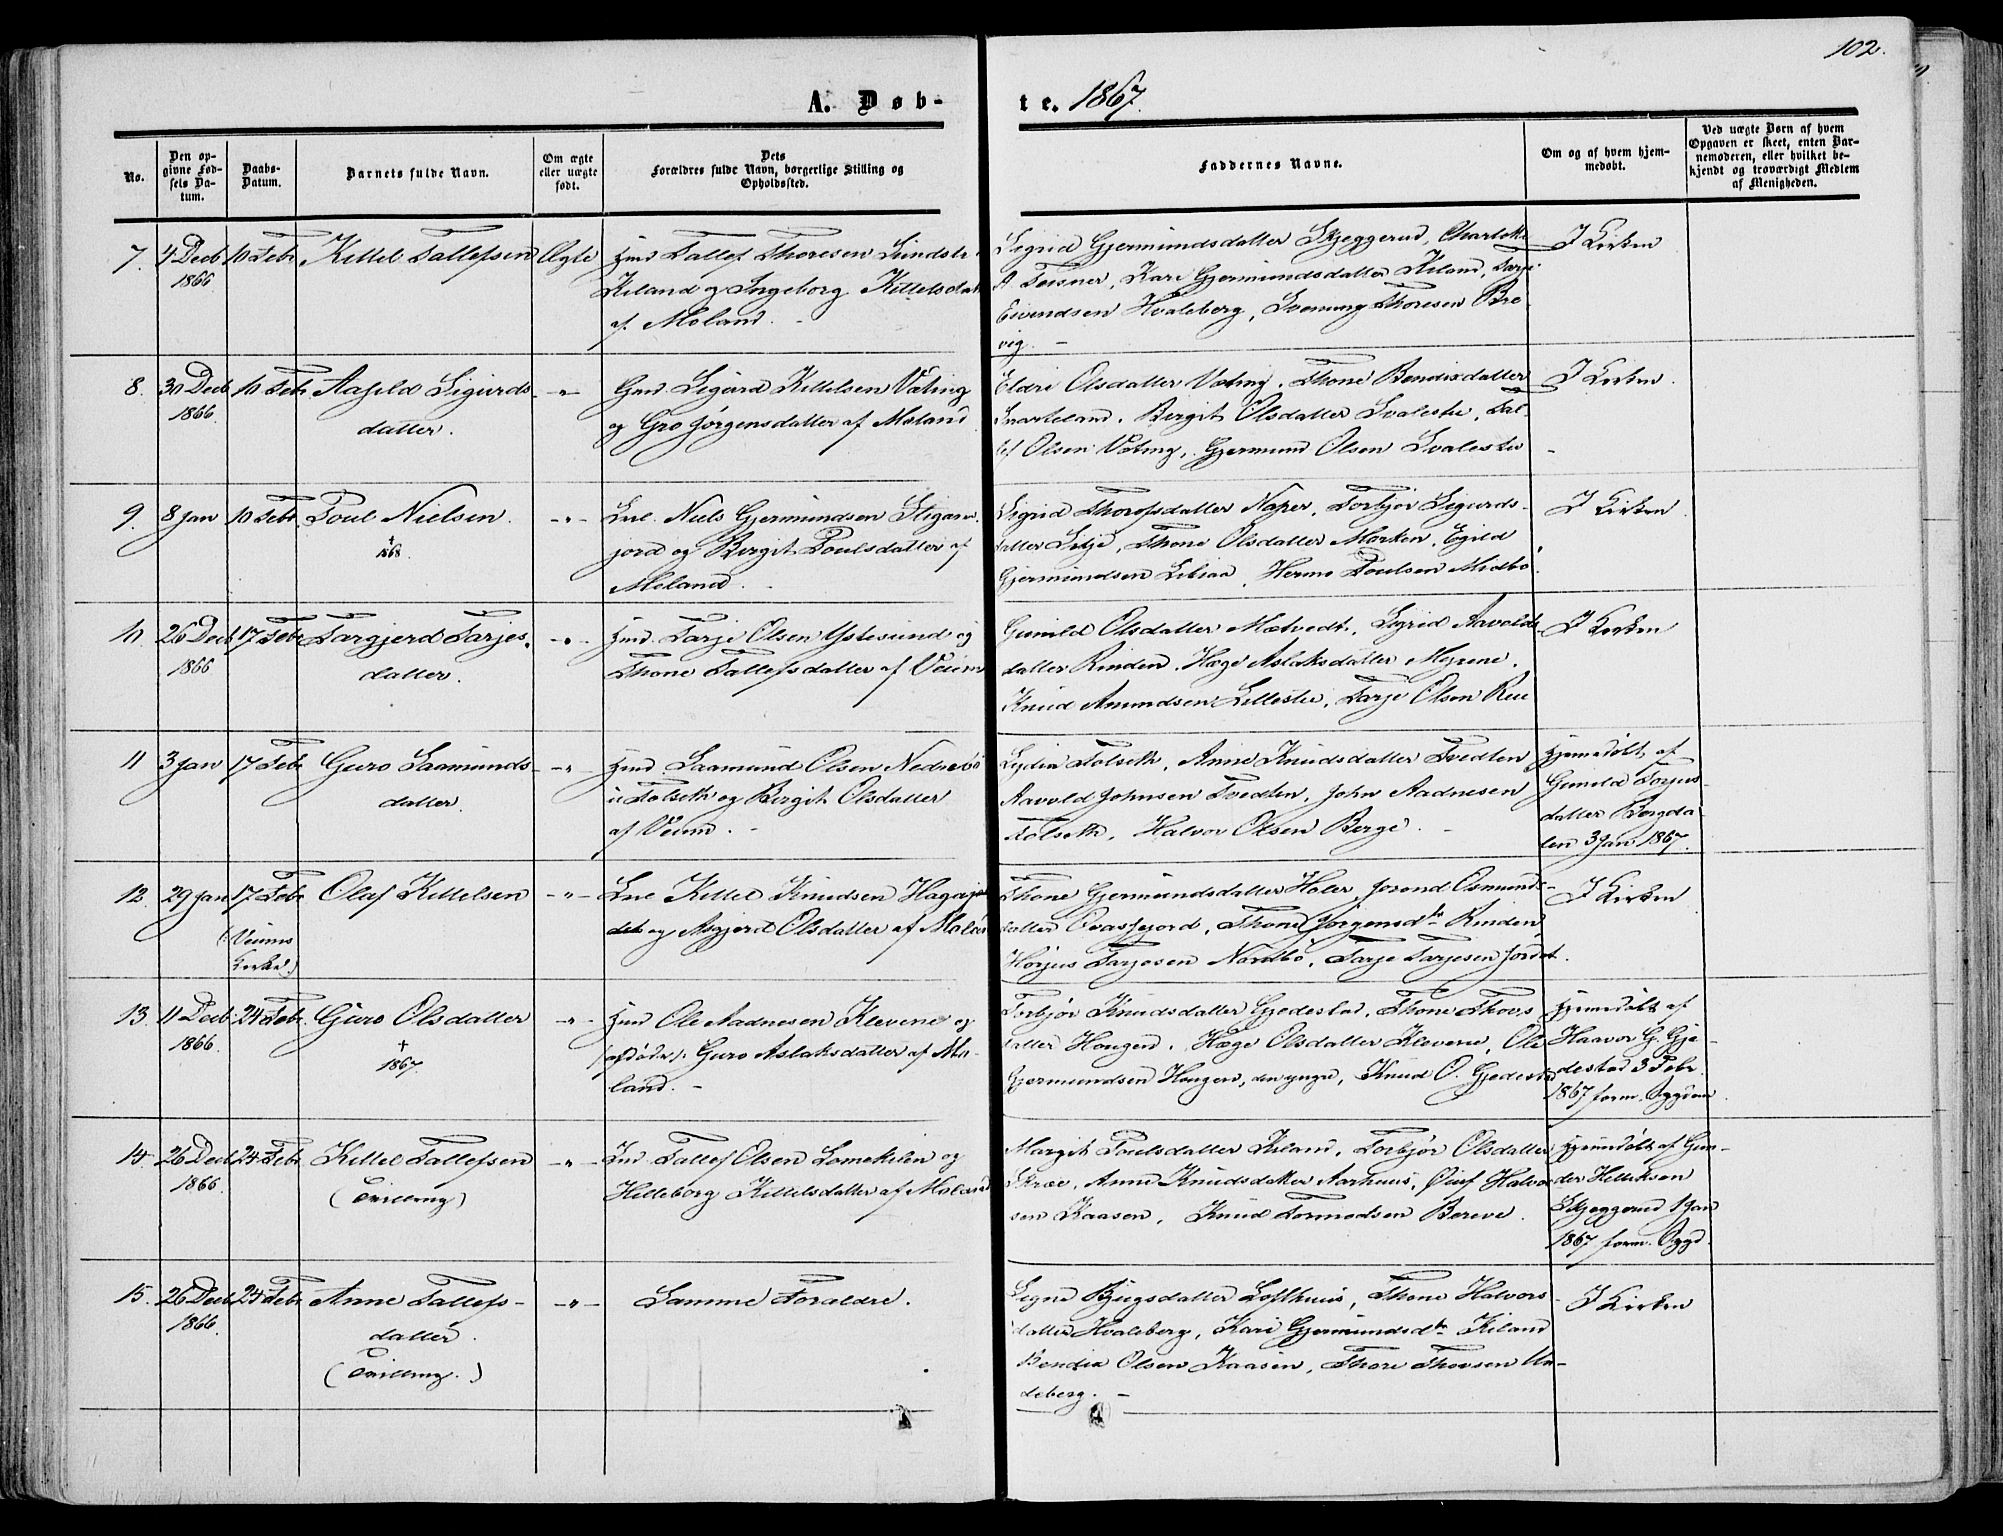 102.
A. Døb-
te. 1867.
No.
Den op-
givne Fød-
sels Da-
tum.
Daabs-
Datum.
Barnets fulde Navn.
Om ægte
eller uægte
født.
Dets
Forældres fulde Navn, borgerlige Stilling og
Opholdssted.
Faddernes Navne.
Om og af hvem hjem-
medøbt.
Ved uægte Børn af hvem
Opgaven er skeet, enten Bar-
nemoderen, eller hvilket be-
kjendt og troværdigt Medlem
af Menigheden.
7. 4 Decb 10 Febr Kittel Tallefsen Ægte Hmd Tallef Thoresen
1866
Kiland og Ingeborg Kittelsdat
af Moland. -
Sigrid Gjermundsdatter Skjeggerud, Charlotte
A Teisner, Kari Gjermundsdatter Kiland, Tarje
Eivendsen Hvaleberg, Svenung Thoresen Bre
vig. -
I Kirken
8. 30 Decb 10 Febr Aasild Sigurds - " - Gmd. Sigurd Kittelsen Vating
1866
datter.
og Gro Jørgensdatter af Moland
Eldri Olsdatter Vating, Thone Bendixdatter
Snarteland, Birgit Olsdatter Svalestu, Tal-
lef Olsen Vating, Gjermund Olsen Svalestu
I Kirken.
9. 8 Jan 10 Febr. Poul Nielsen. - " - Niels Gjermundsen
† 1868.
jord og Birgit Poulsdatter af
Moland. -
Sigrid Thorefsdatter Naper, Torbjør Sigurds-
datter Sitje, Thone Olsdatter Marken, Egild
Gjermundsen Libraa, Hermo Poulsen Midbø.
I Kirken.
10. 26 Decb 17 Febr Targjerd Tarjes- - " - Hmd Tarje Olsen Ystesund og
1866
datter.
Thone Tallefsdatter af Veum
Gunild Olsdatter Mætvedt, Sigrid Aavolds
datter Rinden. Hæge Aslaksdatter Myrene.
Knud Amundsen Lillestu, Tarje Olsen Rue
I Kirken
11 3 Jan 17 Febr Guro Saamunds - " - Hmd. Saamund Olsen Nedrebø
datter.
i Folseth og Birgit Olsdatter
af Veum. -
Lydia Folseth, Anne Knudsdatter Tvedten
Aavold Johnsen Tvedten, John Aadnesen
Folseth, Halvor Olsen Berge. -
Hjemedøbt af
Gunild Torjus-
datter Borgda-
len 3 Jan 1867.
12. 29 Jan 17 Febr Olaf Kittelsen - " - Kittel Knudsen
(Veums
Kirke.)
og Asgjerd Olsdatter af Moland
Thone Gjermundsdatter Høler, Jorand Osmunds-
datter Ovasfjord, Thone Jørgensdtr Rinden
Horjus Tarjesen Nordbø, Tarje Tarjesen Jordet.
I Kirken
13. 11 Decb. 24 Febr. Guro Olsdatter - " - Hmd Ole Aadnesen Klevene og
1866.
†
1867.
(afdøde) Guro Aslaksdatter af Mo-
land. -
Torbjør Knudsdatter Gjedestad, Thone Thovs
datter Haugen, Hæge Olsdatter Klevene, Ole
Gjermundsen Haugen, den yngre, Knud O. Gjedestad
Hjemedøbt af
Haavor G. Gje-
destad 3 Febr.
1867 form. Sygdom.
14. 26 Decb 24 Febr Kittel Tallefsen - " - Tallef Olsen Lomekilen og
1866.
(Tvilling)
Hilleborg Kittelsdatter af Moland
Margit Poulsdatter Kiland, Torbjør Olsdatter
Skree, Anne Knudsdatter Aarhuus, Oluf Halvor
sen Kaasen, Knud Tormodsen Bereve.
Hjemmedøbt af Gun-
der Helliksen
Skjeggerud 1 Jan
1867 form. Sygd.
15. 26 Decb 24 Febr Anne Tallefs- - " - Samme Forældre.
1866.
datter.
(Tvilling.)
Signe Bjugsdatter Lofthuus, Thone Halvors-
datter Hvaleberg, Kari Gjermundsdtr Kiland
Bendix Olsen Kaasen, Thore Thovsen Un-
deberg. -
I Kirken